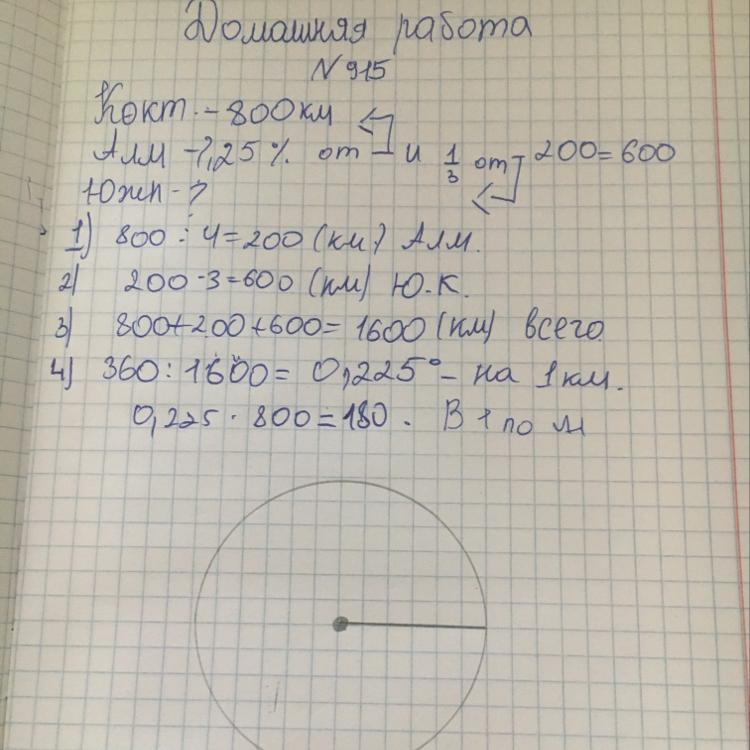 Домашняя работа
N 915
Кокт. - 800 км
Алм - ?, 25 % от и 1/3 от 200 = 600
Южн - ?
1) 800 : 4 = 200 (км) Алм.
2) 200 · 3 = 600 (км) Ю.К.
3) 800 + 200 + 600 = 1600 (км) всего
4) 360 : 1600 = 0,225° - на 1 км.
0,225 · 800 = 180. В 1 по